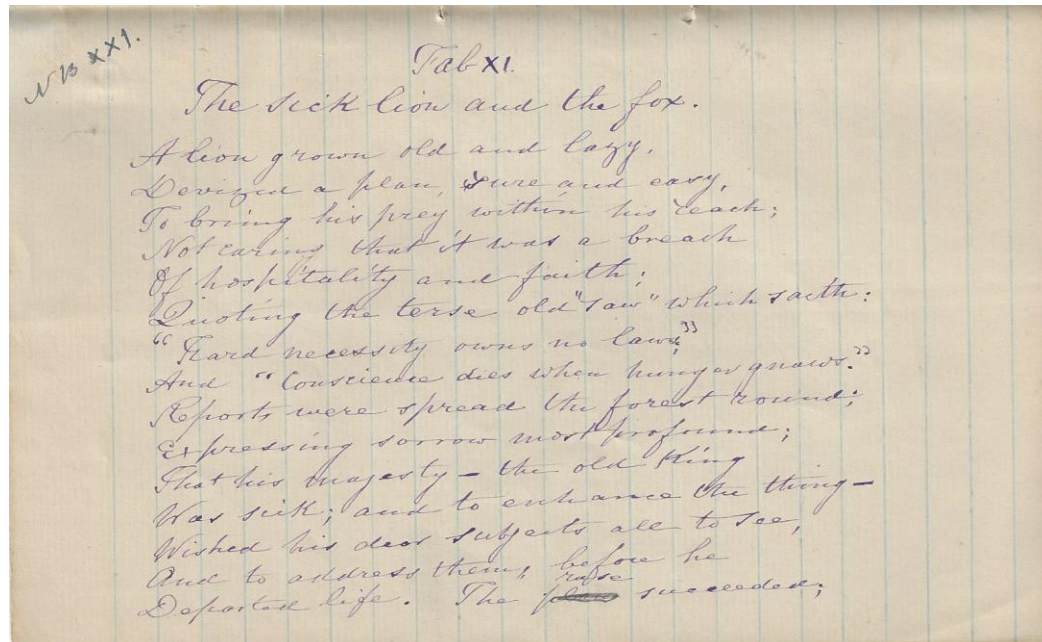 NB XXI.
Fab XI.
The sick lion and the fox.
A lion grown old and lazy,
Devized a plan, sure and easy,
To bring his prey within his reach;
Not caring that it was a breach
Of hospitality and faith;
Quoting the terse old "saw" which saith:
"Hard necessity owns no laws,"
And "Conscience dies when hunger gnaws."
Reports were spread the forest round;
Expressing sorrow most profound;
That his majesty – the old King
Was sick; and to enhance the thing –
Wished his dear subjects all to see,
And to address them, before he
Departed life. The ruse succeeded;